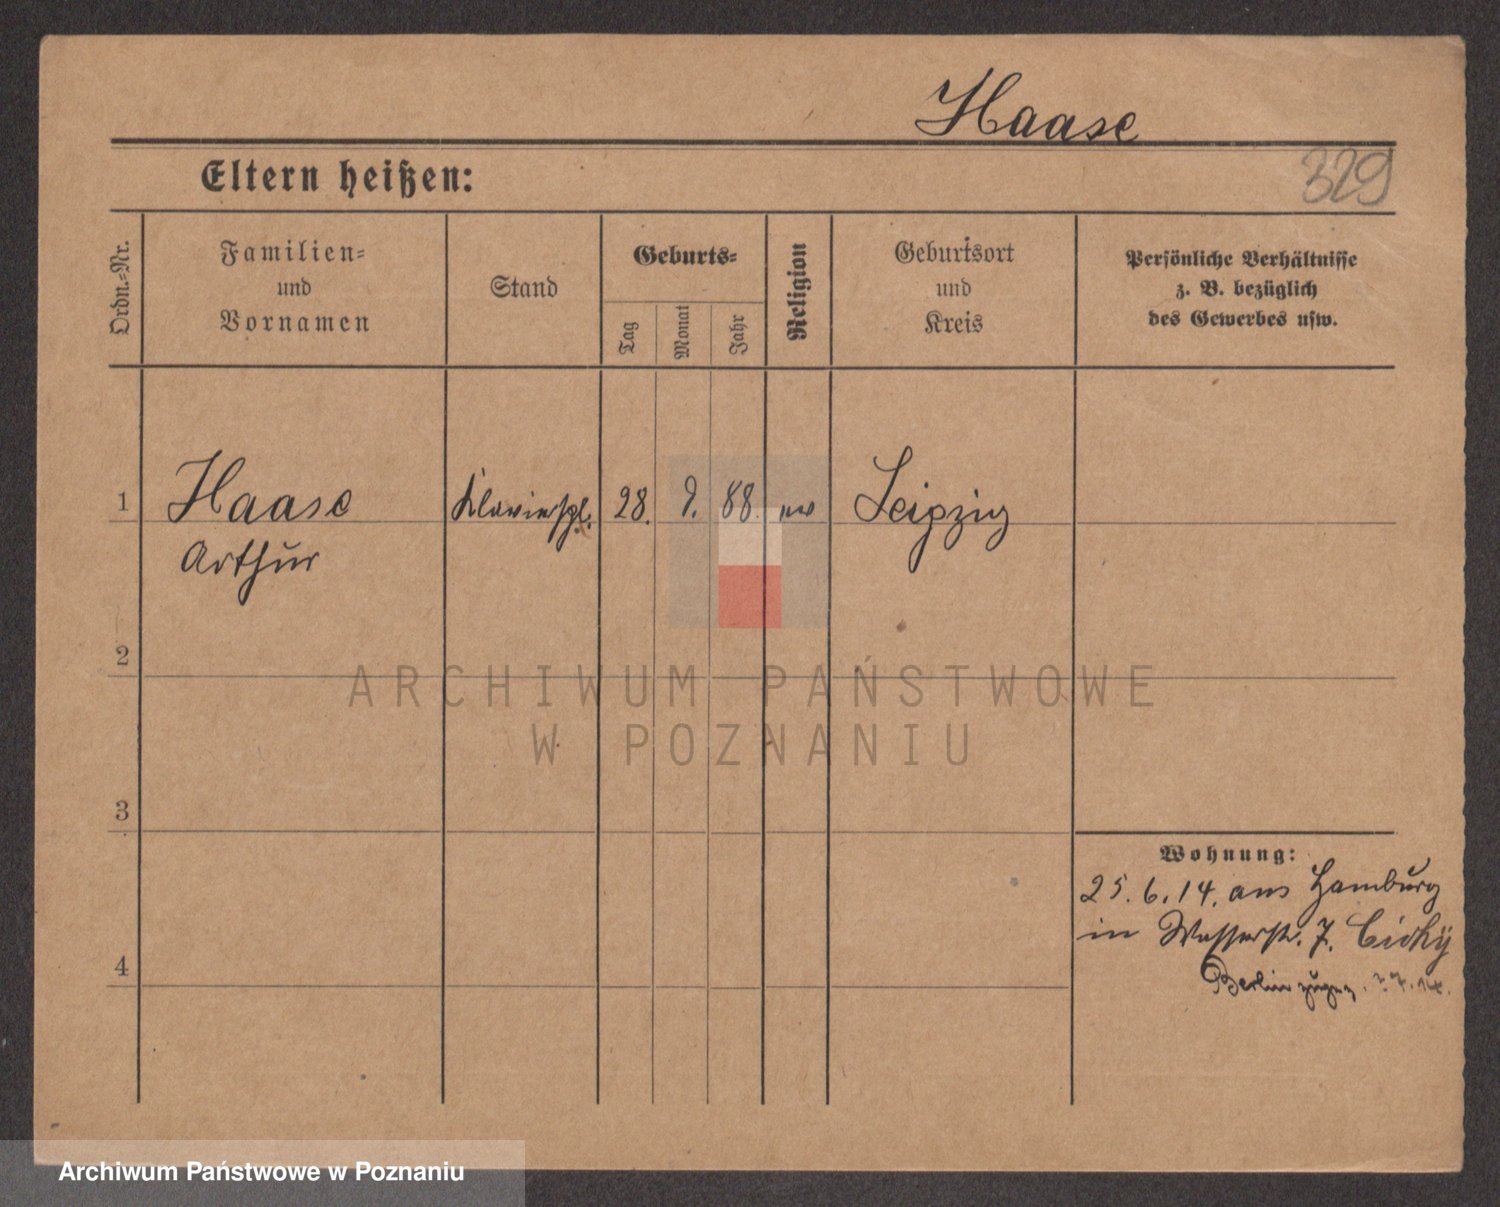 Haase
329
Eltern heißen:
Ordn.-Nr.
Familien-
und
Vornamen
Stand
Geburts-
Tag
Monat
Jahr
Religion
Geburtsort
und
Kreis
Persönliche Verhältnisse
z. B. bezüglich
des Gewerbes usw.
1
Haase
Arthur
Klavierspl.
28.
88.
ev
Leipzig
2
ARCHIWUM PAŃSTWOWE
W POZNANIU
3
4
Wohnung:
25. 6. 14. aus Hamburg
in Wasserstr. 7. Cichy
Berlin 7. 14.
Archiwum Państwowe w Poznaniu